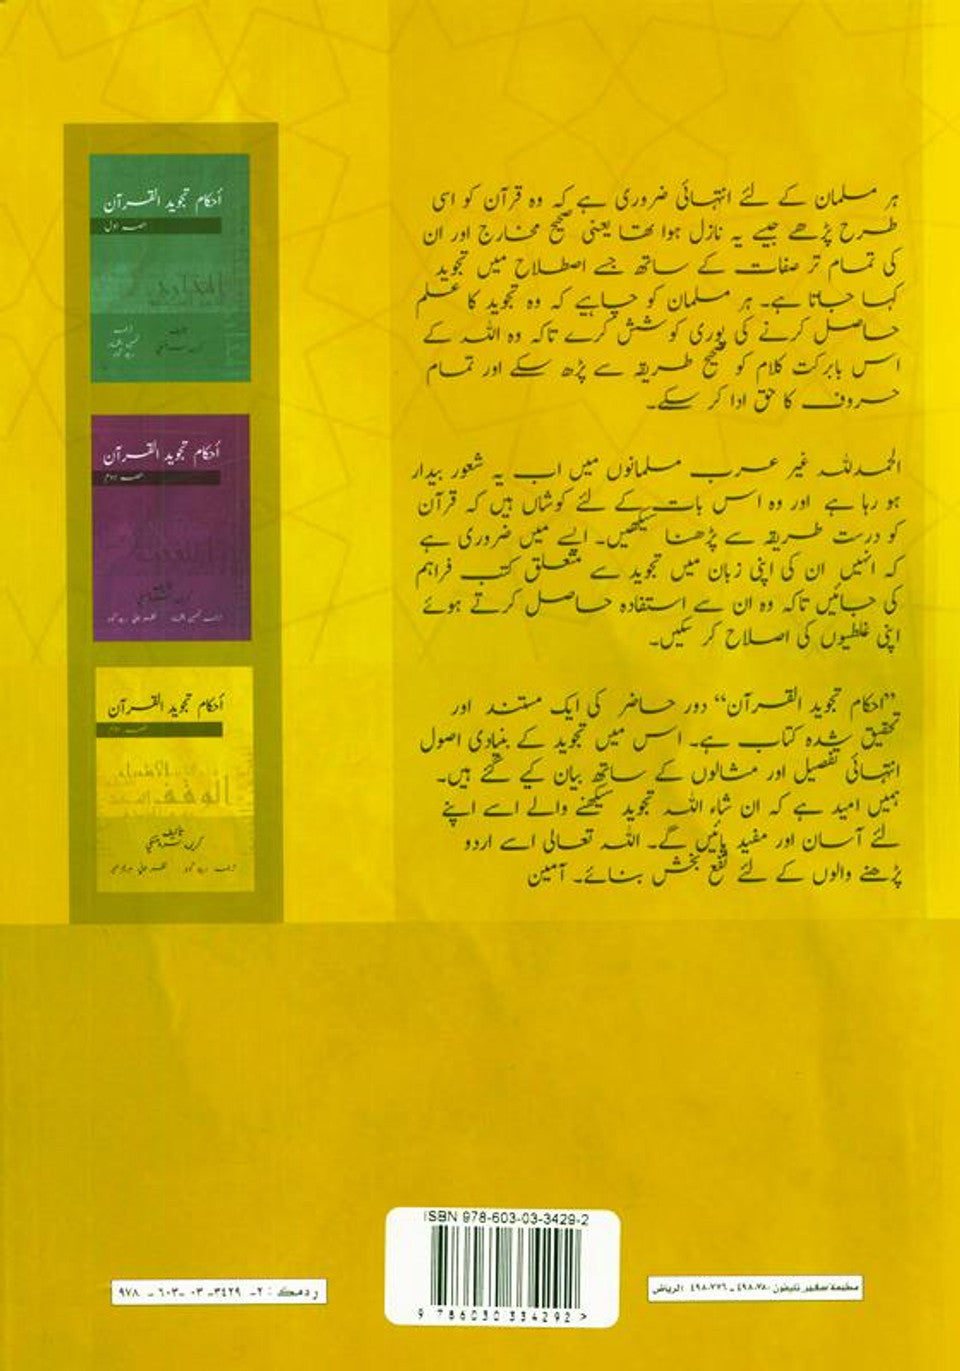 ہر مسلمان کے لئے انتہائی ضروری ہے کہ وہ قرآن کو اسی
طرح پڑھے جیسے یہ نازل ہوا تھا یعنی صحیح مخارج اور ان
کی تمام تر صفات کے ساتھ جسے اصطلاح میں تجوید
کہا جاتا ہے۔ ہر مسلمان کو چاہیے کہ وہ تجوید کا علم
حاصل کرنے کی پوری کوشش کرے تاکہ وہ اللہ کے
اس بابرکت کلام کو صحیح طریقہ سے پڑھ سکے اور تمام
حروف کا حق ادا کر سکے۔
الحمدللہ غیر عرب مسلمانوں میں اب یہ شعور بیدار
ہو رہا ہے اور وہ اس بات کے لئے کوشاں ہیں کہ قرآن
کو درست طریقہ سے پڑھنا سیکھیں۔ ایسے میں ضروری ہے
کہ انہیں ان کی اپنی زبان میں تجوید سے متعلق کتب فراہم
کی جائیں تاکہ وہ ان سے استفادہ حاصل کرتے ہوئے
اپنی غلطیوں کی اصلاح کر سکیں۔
”احکام تجوید القرآن“ دور حاضر کی ایک مستند اور
تحقیق شدہ کتاب ہے۔ اس میں تجوید کے بنیادی اصول
انتہائی تفصیل اور مثالوں کے ساتھ بیان کیے گئے ہیں۔
ہمیں امید ہے کہ ان شاء اللہ تجوید سیکھنے والے اسے اپنے
لئے آسان اور مفید پائیں گے۔ اللہ تعالی اسے اردو
پڑھنے والوں کے لئے نفع بخش بنائے۔ آمین
أحکام تجوید القرآن
حصہ اول
أحکام تجوید القرآن
حصہ دوم
أحکام تجوید القرآن
حصہ سوم
الوقف
تألیف
ISBN 978-603-03-3429-2
9 786030 334292 >
ردمك : ٢- ٣٤٢٩- ٠٣ -٦٠٣ - ٩٧٨
مطبعة سفير تليفون ٤٩٨٠٧٨٠ - ٤٩٨٠٧٧٦ الرياض